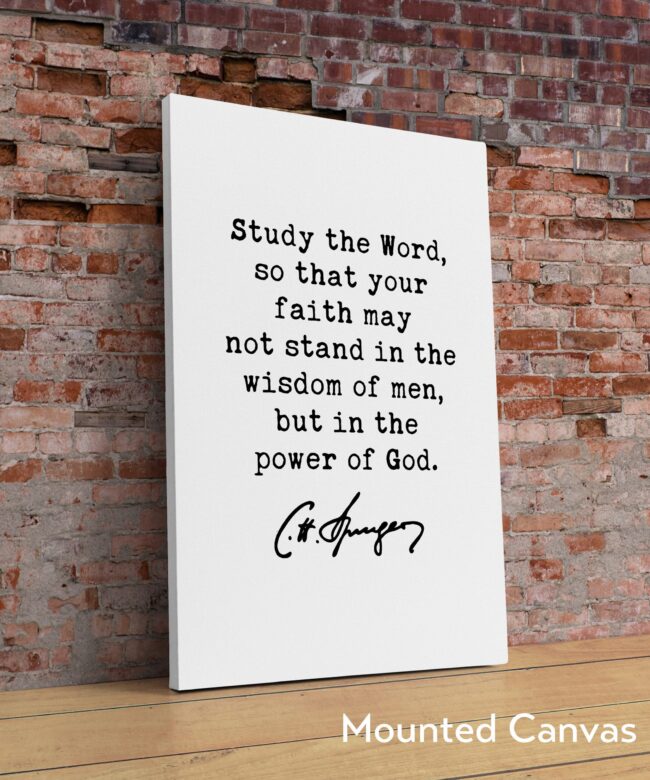 Study the Word,
so that your
faith may
not stand in the
wisdom of men,
but in the
power of God.
C.H. Spurgeon
Mounted Canvas